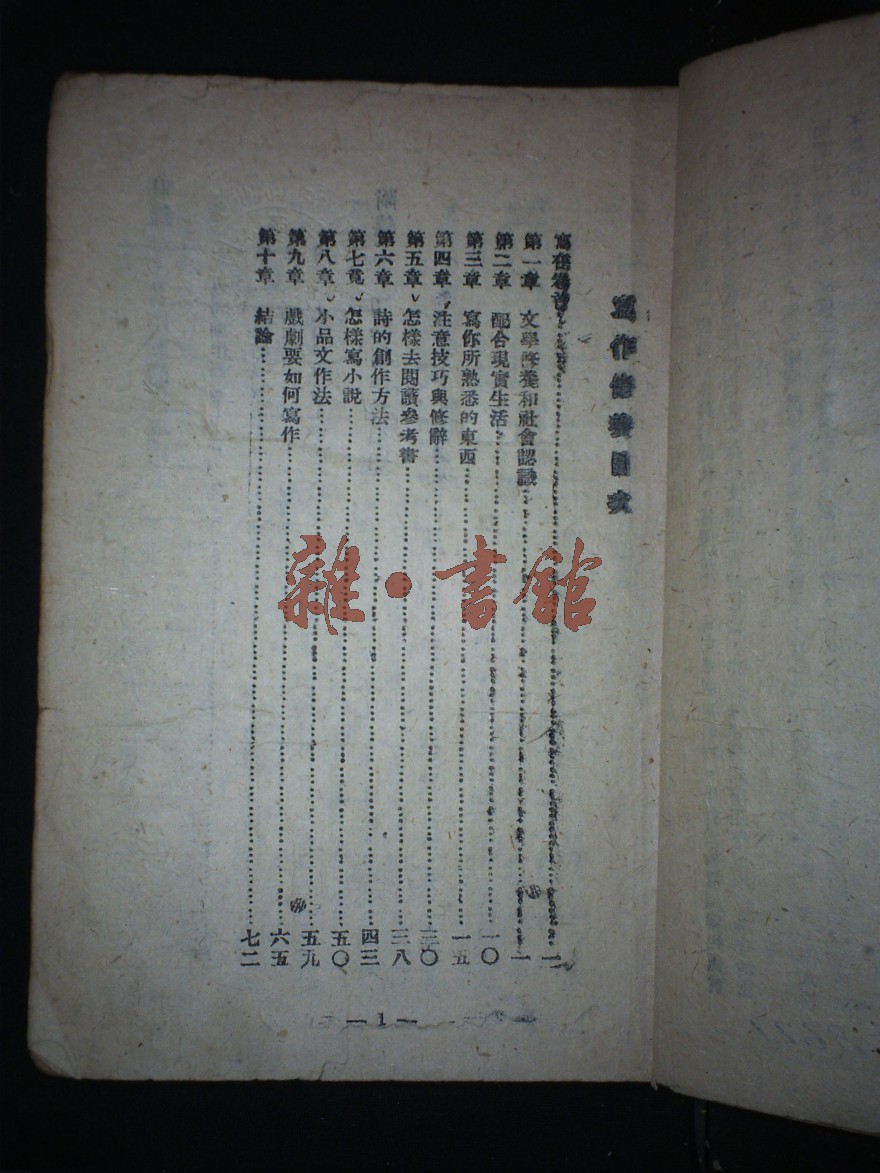 寫作修養目次
寫在卷首……一
第一章 文學修養和社會認識……一
第二章 配合現實生活……一〇
第三章 寫你所熟悉的東西……一五
第四章 注意技巧與修辭……三〇
第五章 怎樣去閱讀參考書……三八
第六章 詩的創作方法……四三
第七章 怎樣寫小說……五〇
第八章 小品文作法……五九
第九章 戲劇要如何寫作……六五
第十章 結論……七二
— 1 —
雜·書館